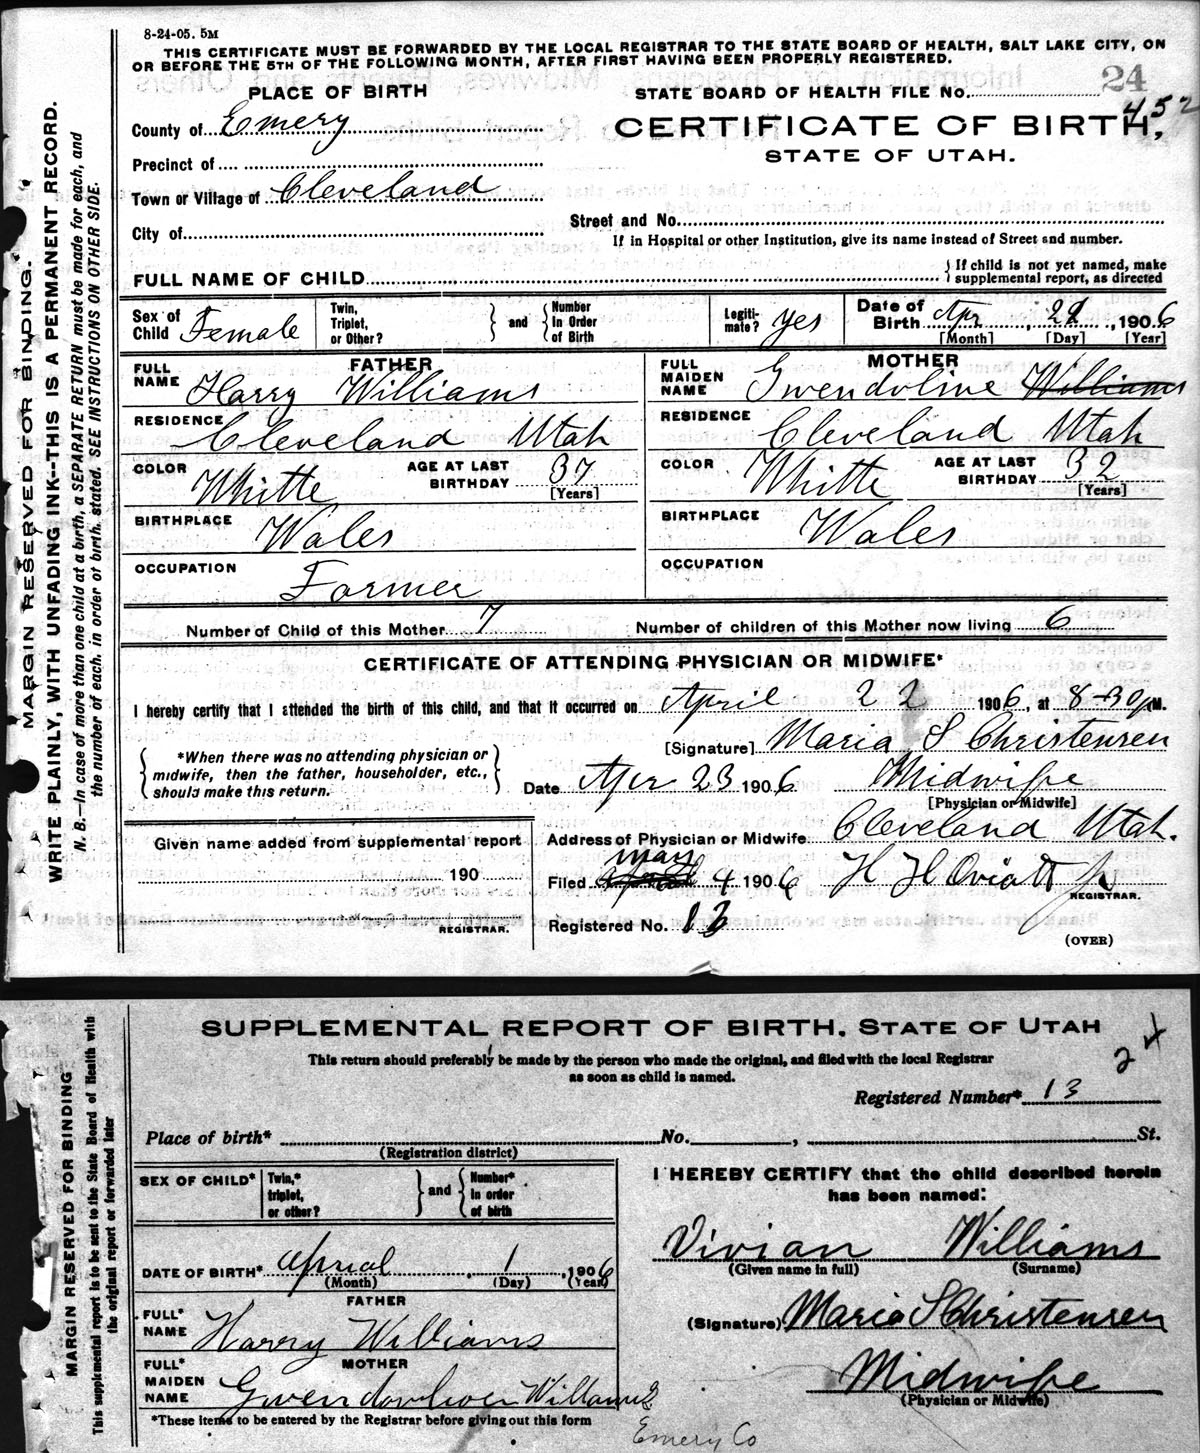 8-24-05. 5M
THIS CERTIFICATE MUST BE FORWARDED BY THE LOCAL REGISTRAR TO THE STATE BOARD OF HEALTH, SALT LAKE CITY, ON
OR BEFORE THE 5TH OF THE FOLLOWING MONTH, AFTER FIRST HAVING BEEN PROPERLY REGISTERED.
PLACE OF BIRTH
STATE BOARD OF HEALTH FILE No. 24
452
County of Emery
CERTIFICATE OF BIRTH,
STATE OF UTAH.
Precinct of
Town or Village of Cleveland
Street and No.
City of
If in Hospital or other Institution, give its name instead of Street and number.
FULL NAME OF CHILD
{ If child is not yet named, make
supplemental report, as directed
Sex of Child Female
Twin, Triplet, or Other? } and { Number In Order of Birth
Legiti-mate? yes
Date of Birth Apr, 22, 1906
[Month] [Day] [Year]
FATHER
FULL NAME Harry Williams
RESIDENCE Cleveland Utah
COLOR Whitte
AGE AT LAST BIRTHDAY 37 [Years]
BIRTHPLACE Wales
OCCUPATION Farmer
MOTHER
FULL MAIDEN NAME Gwendoline Williams
RESIDENCE Cleveland Utah
COLOR Whitte
AGE AT LAST BIRTHDAY 32 [Years]
BIRTHPLACE Wales
OCCUPATION
Number of Child of this Mother 7
Number of children of this Mother now living 6
CERTIFICATE OF ATTENDING PHYSICIAN OR MIDWIFE*
I hereby certify that I attended the birth of this child, and that it occurred on April 22 1906, at 8-30 M.
[Signature] Maria S Christensen
*When there was no attending physician or
midwife, then the father, householder, etc.,
should make this return.
Date Apr 23 1906 Midwife
[Physician or Midwife]
Given name added from supplemental report
190
REGISTRAR.
Address of Physician or Midwife Cleveland Utah.
Filed May 4 1906 H H Oviatt Jr
REGISTRAR.
Registered No. 13
(OVER)
MARGIN RESERVED FOR BINDING.
WRITE PLAINLY, WITH UNFADING INK--THIS IS A PERMANENT RECORD.
N. B.—In case of more than one child at a birth, a SEPARATE RETURN must be made for each, and
the number of each, in order of birth, stated. SEE INSTRUCTIONS ON OTHER SIDE.
SUPPLEMENTAL REPORT OF BIRTH, STATE OF UTAH
This return should preferably be made by the person who made the original, and filed with the local Registrar
as soon as child is named.
24
Registered Number* 13
Place of birth* No. , St.
(Registration district)
SEX OF CHILD*
Twin,* triplet, or other? } and { Number* In order of birth
DATE OF BIRTH* 1, 1906
(Month) (Day) (Year)
FATHER
FULL* NAME Harry Williams
MOTHER
FULL* MAIDEN NAME Williams
*These items to be entered by the Registrar before giving out this form
I HEREBY CERTIFY that the child described herein
has been named:
Vivian Williams
(Given name in full) (Surname)
(Signature) Maria S Christensen
Midwife
(Physician or Midwife)
Emery Co
MARGIN RESERVED FOR BINDING
This supplemental report is to be sent to the State Board of Health with
the original report or forwarded later